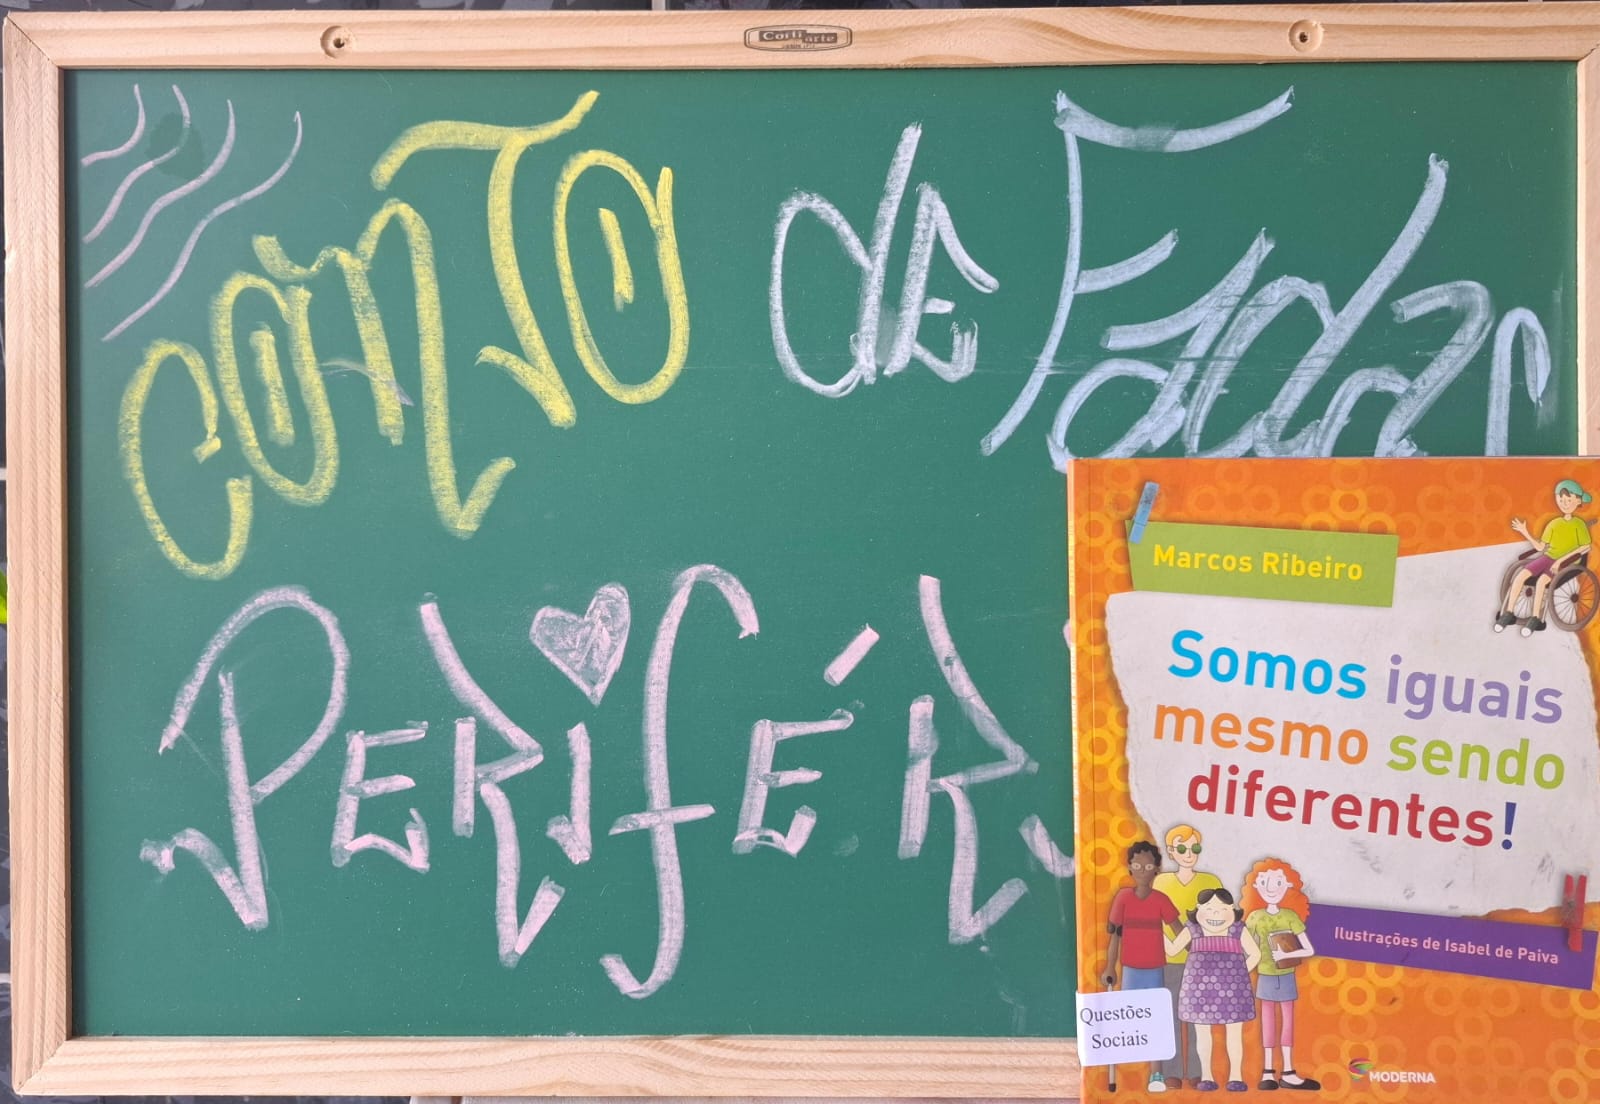 Cortiarte
CONTO de Fadas
PERIFÉR
Marcos Ribeiro
Somos iguais
mesmo sendo
diferentes!
Ilustrações de Isabel de Paiva
Questões
Sociais
MODERNA